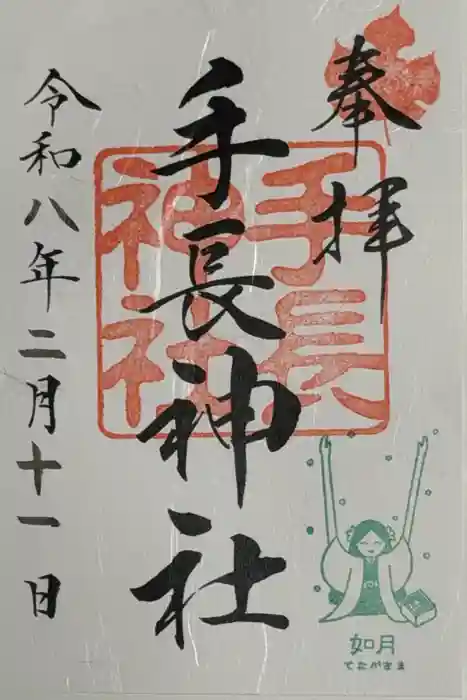 奉拝
手長神社
手長神社
令和八年二月十一日
如月
てながさま